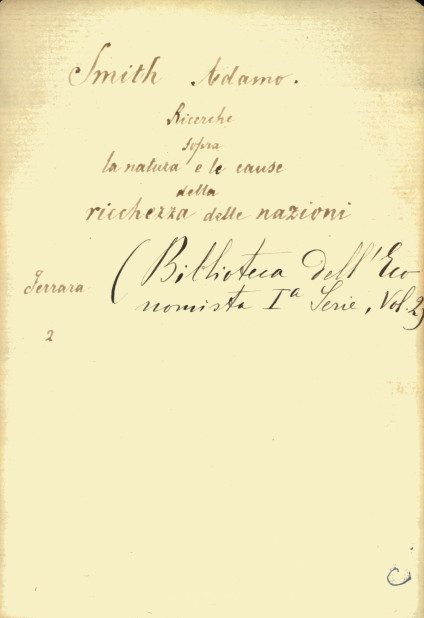 Smith Adamo.
Ricerche
sopra
la natura e le cause
della
ricchezza delle nazioni
(Biblioteca dell'Eco
nomista Iª Serie, Vol. 2)
Ferrara
2